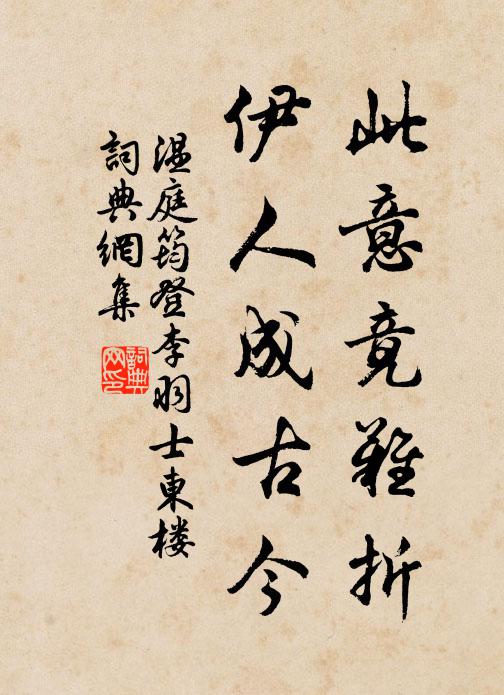 此意竟難折
伊人成古今
温庭筠登李羽士東楼
詞典網集
詞典網印